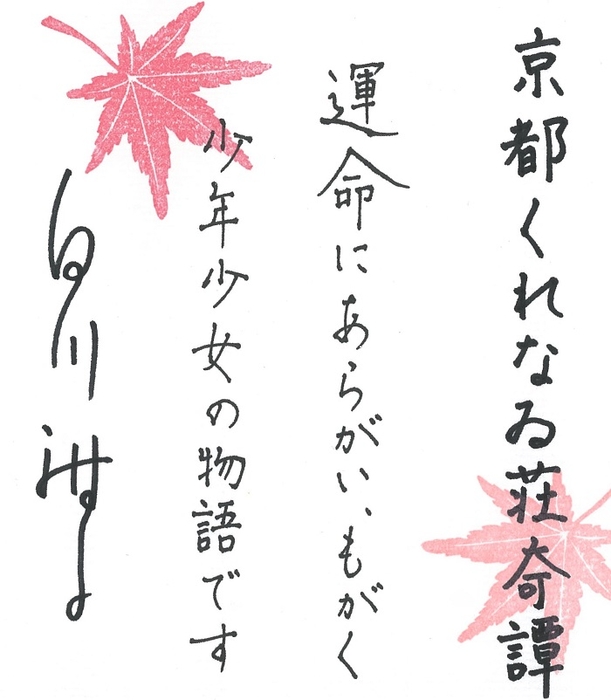 京都くれなゐ荘奇譚
運命にあらがい、もがく
少年少女の物語です
白川紺子